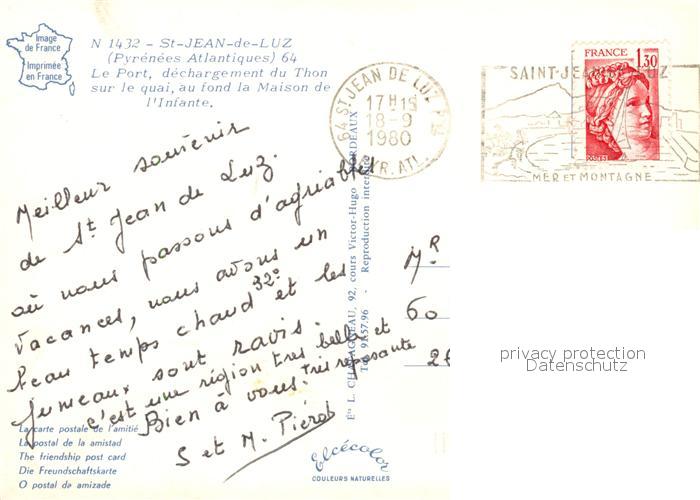 Image
de France
Imprimée
en France
N 1432 - St-JEAN-de-LUZ
(Pyrénées Atlantiques) 64
Le Port, déchargement du Thon
sur le quai, au fond la Maison de
l'Infante.
64 ST JEAN DE LUZ
17H15
18-9
1980
PYR. ATL.
SAINT-JEAN-DE-LUZ
MER ET MONTAGNE
FRANCE
1,30
POSTES
Meilleur souvenir
de St Jean de Luz.
où nous passons d'agriables
vacances, nous avons un
beau temps chaud 32° et les
jumeaux sont ravis.
c'est une région très belle et
très reposante
Bien à vous.
S et M. Piérot
MR
60
privacy protection
Datenschutz
92, cours Victor-Hugo BORDEAUX
Reproduction interdite
La carte postale de l'amitié
La postal de la amistad
The friendship post card
Die Freundschaftskarte
O postal de amizade
Elcécolor
COULEURS NATURELLES